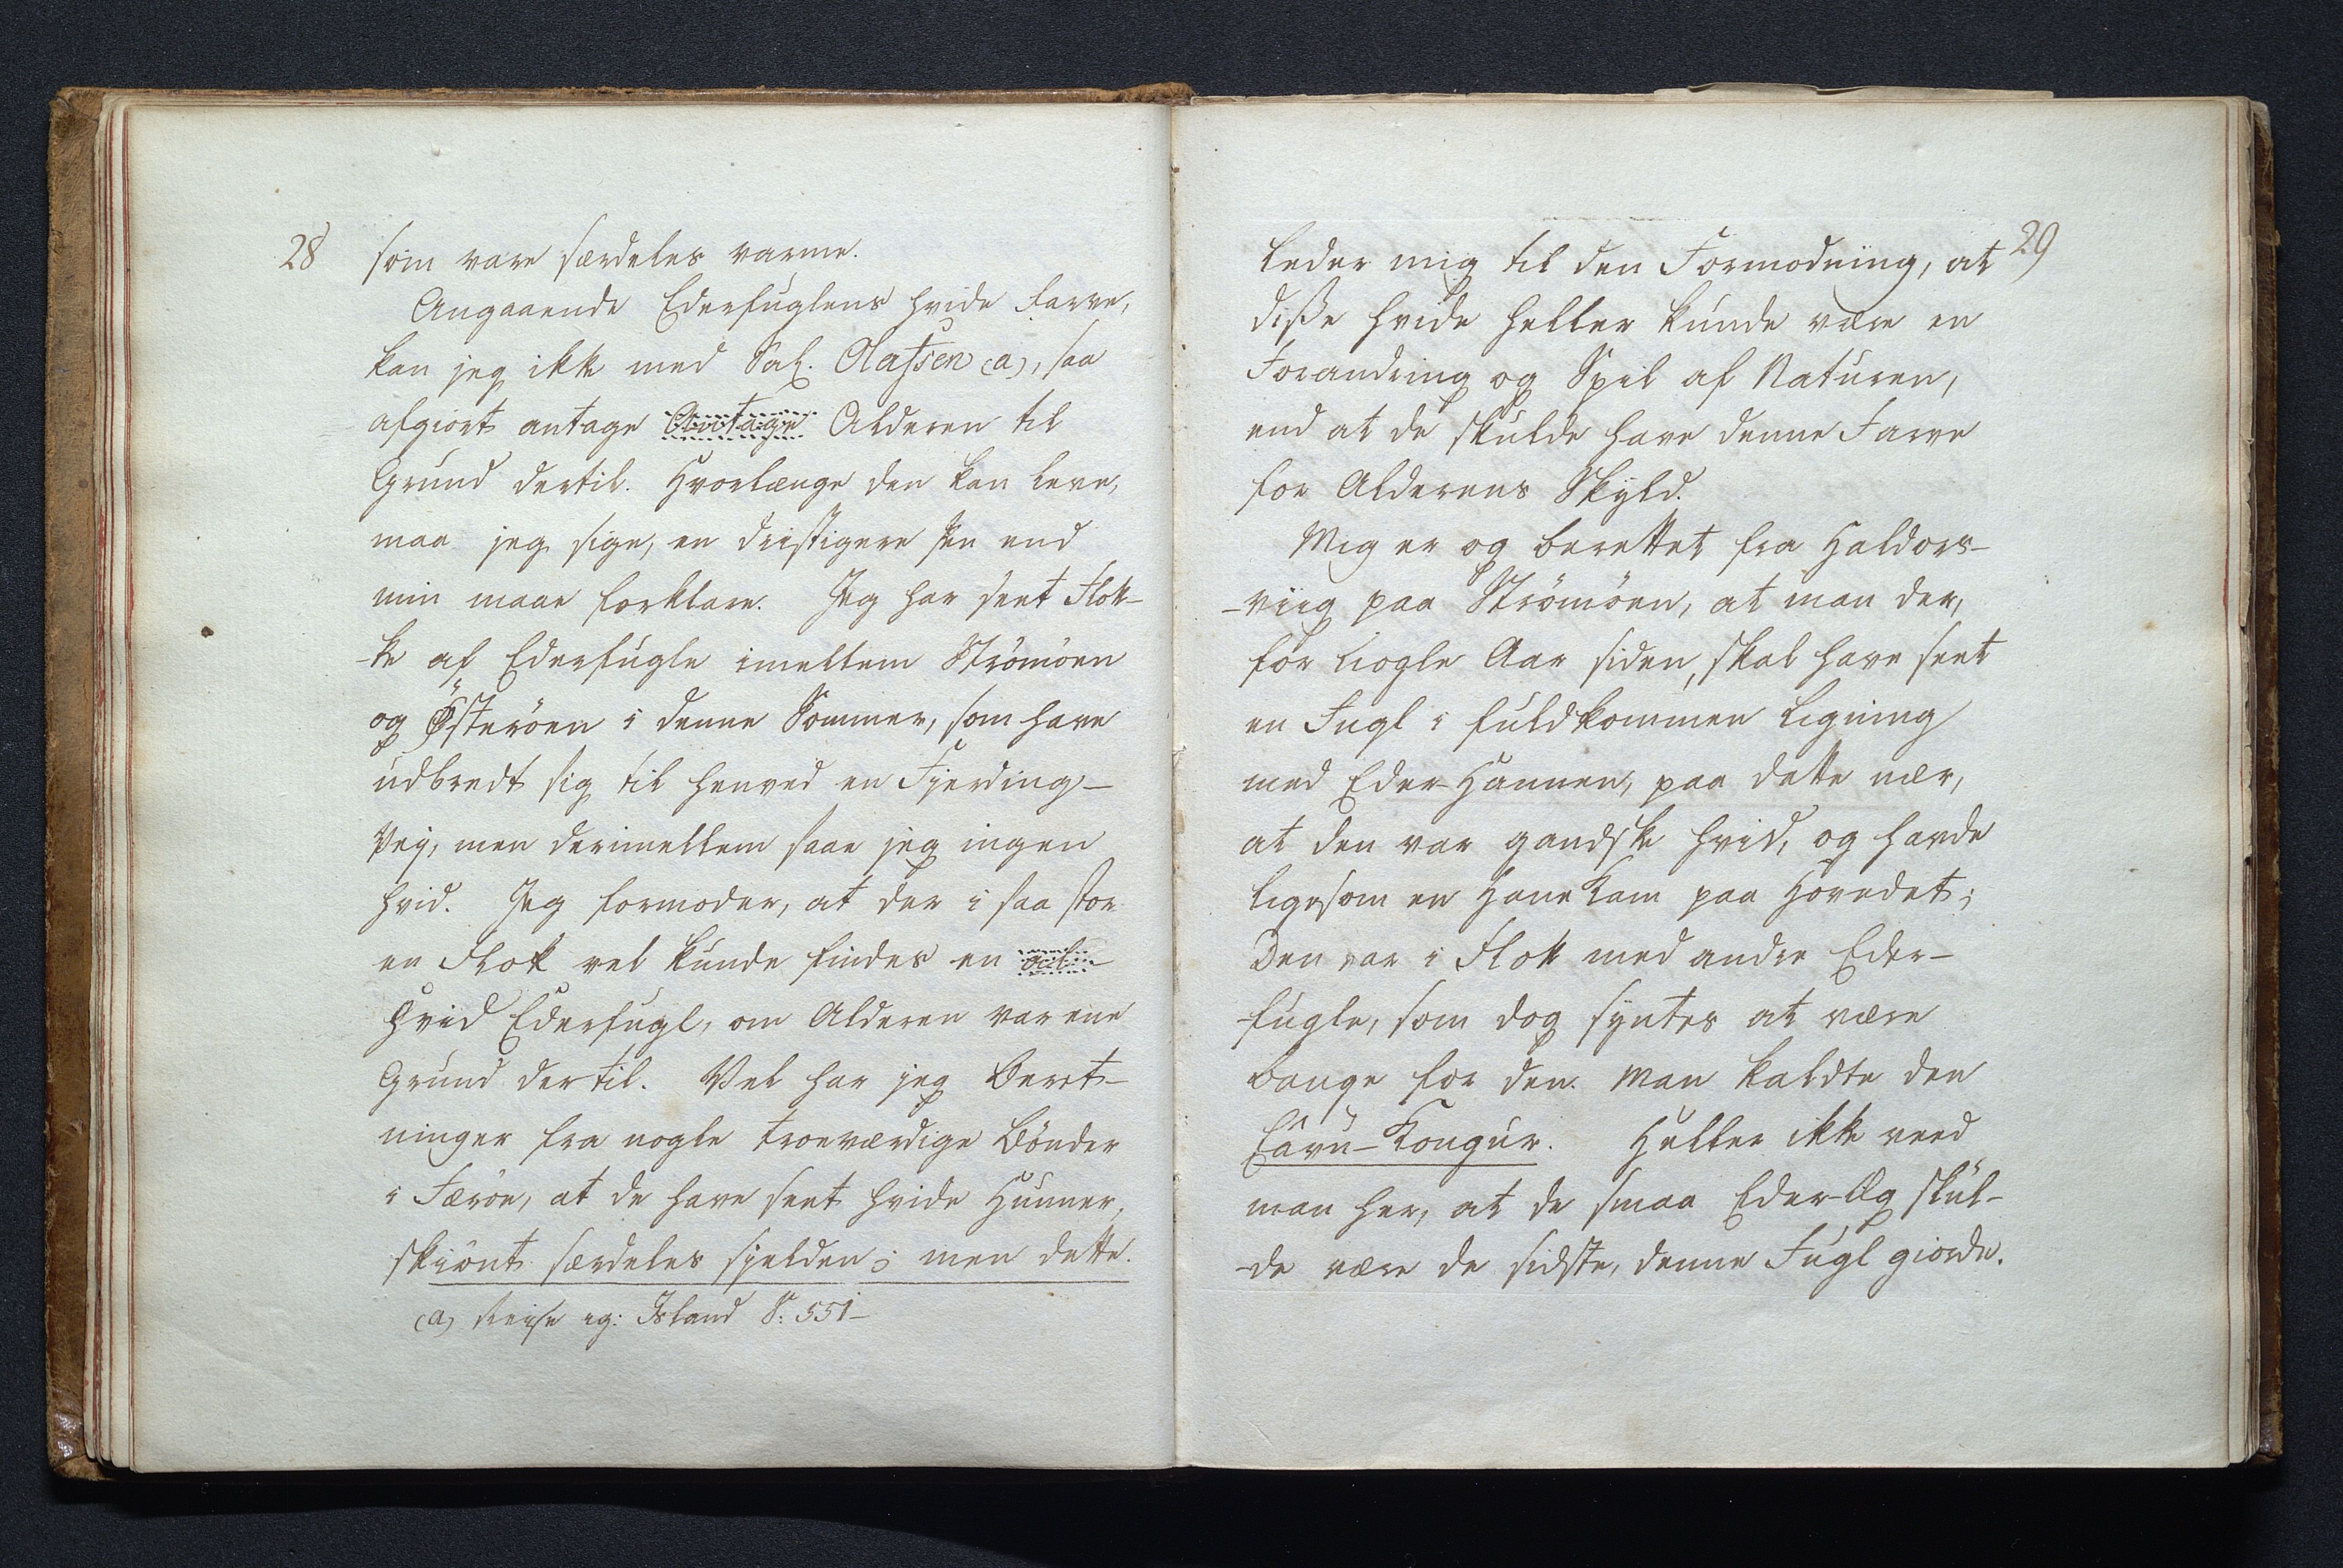 28
som vare særdeles varme.
Angaaende Ederfuglens hvide Farve,
kan jeg ikke med Sal. Olafsen (a), saa
afgiort antage Antage Alderen til
Grund dertil. Hvorlænge den kan leve,
maa jeg sige, en driftigere Pen end
min maae forklare. Jeg har seet Flok-
-ke af Ederfugle imellem Strömöen
og Østeröen i denne Sommer, som have
udbredt sig til henved en Fjerding-
Vej, men derimellem saae jeg ingen
hvid. Jeg formoder, at der i saa stor
en Flok vel kunde findes en
Hvid Ederfugl, om Alderen var ene
Grund dertil. Vel har jeg Beret-
ninger fra nogle troeværdige Bönder
i Færöe, at de have seet hvide Hunner,
skiönt særdeles sjelden; men dette.
(a) Reise ig: Island S. 551-
29
leder mig til den Formodning, at
disse hvide heller kunde være en
Forandring og Spil af Naturen,
end at de skulde have denne Farve
for Alderens Skyld.
Mig er og berettet fra Haldors-
-viig paa Strömöen, at man der,
for nogle Aar siden, skal have seet
en Fugl i fuldkommen Ligning
med Eder-Hannen, paa dette nær,
at den var gandske hvid, og havde
ligesom en Hane Kam paa Hovedet;
Den var i Flok med andre Eder-
fugle, som dog syntes at være
bange for den. Man kaldte den
Eavu-Kongur. Heller ikke veed
man her, at de smaa Eder-Æg skul-
-de være de sidste, denne Fugl giorde.